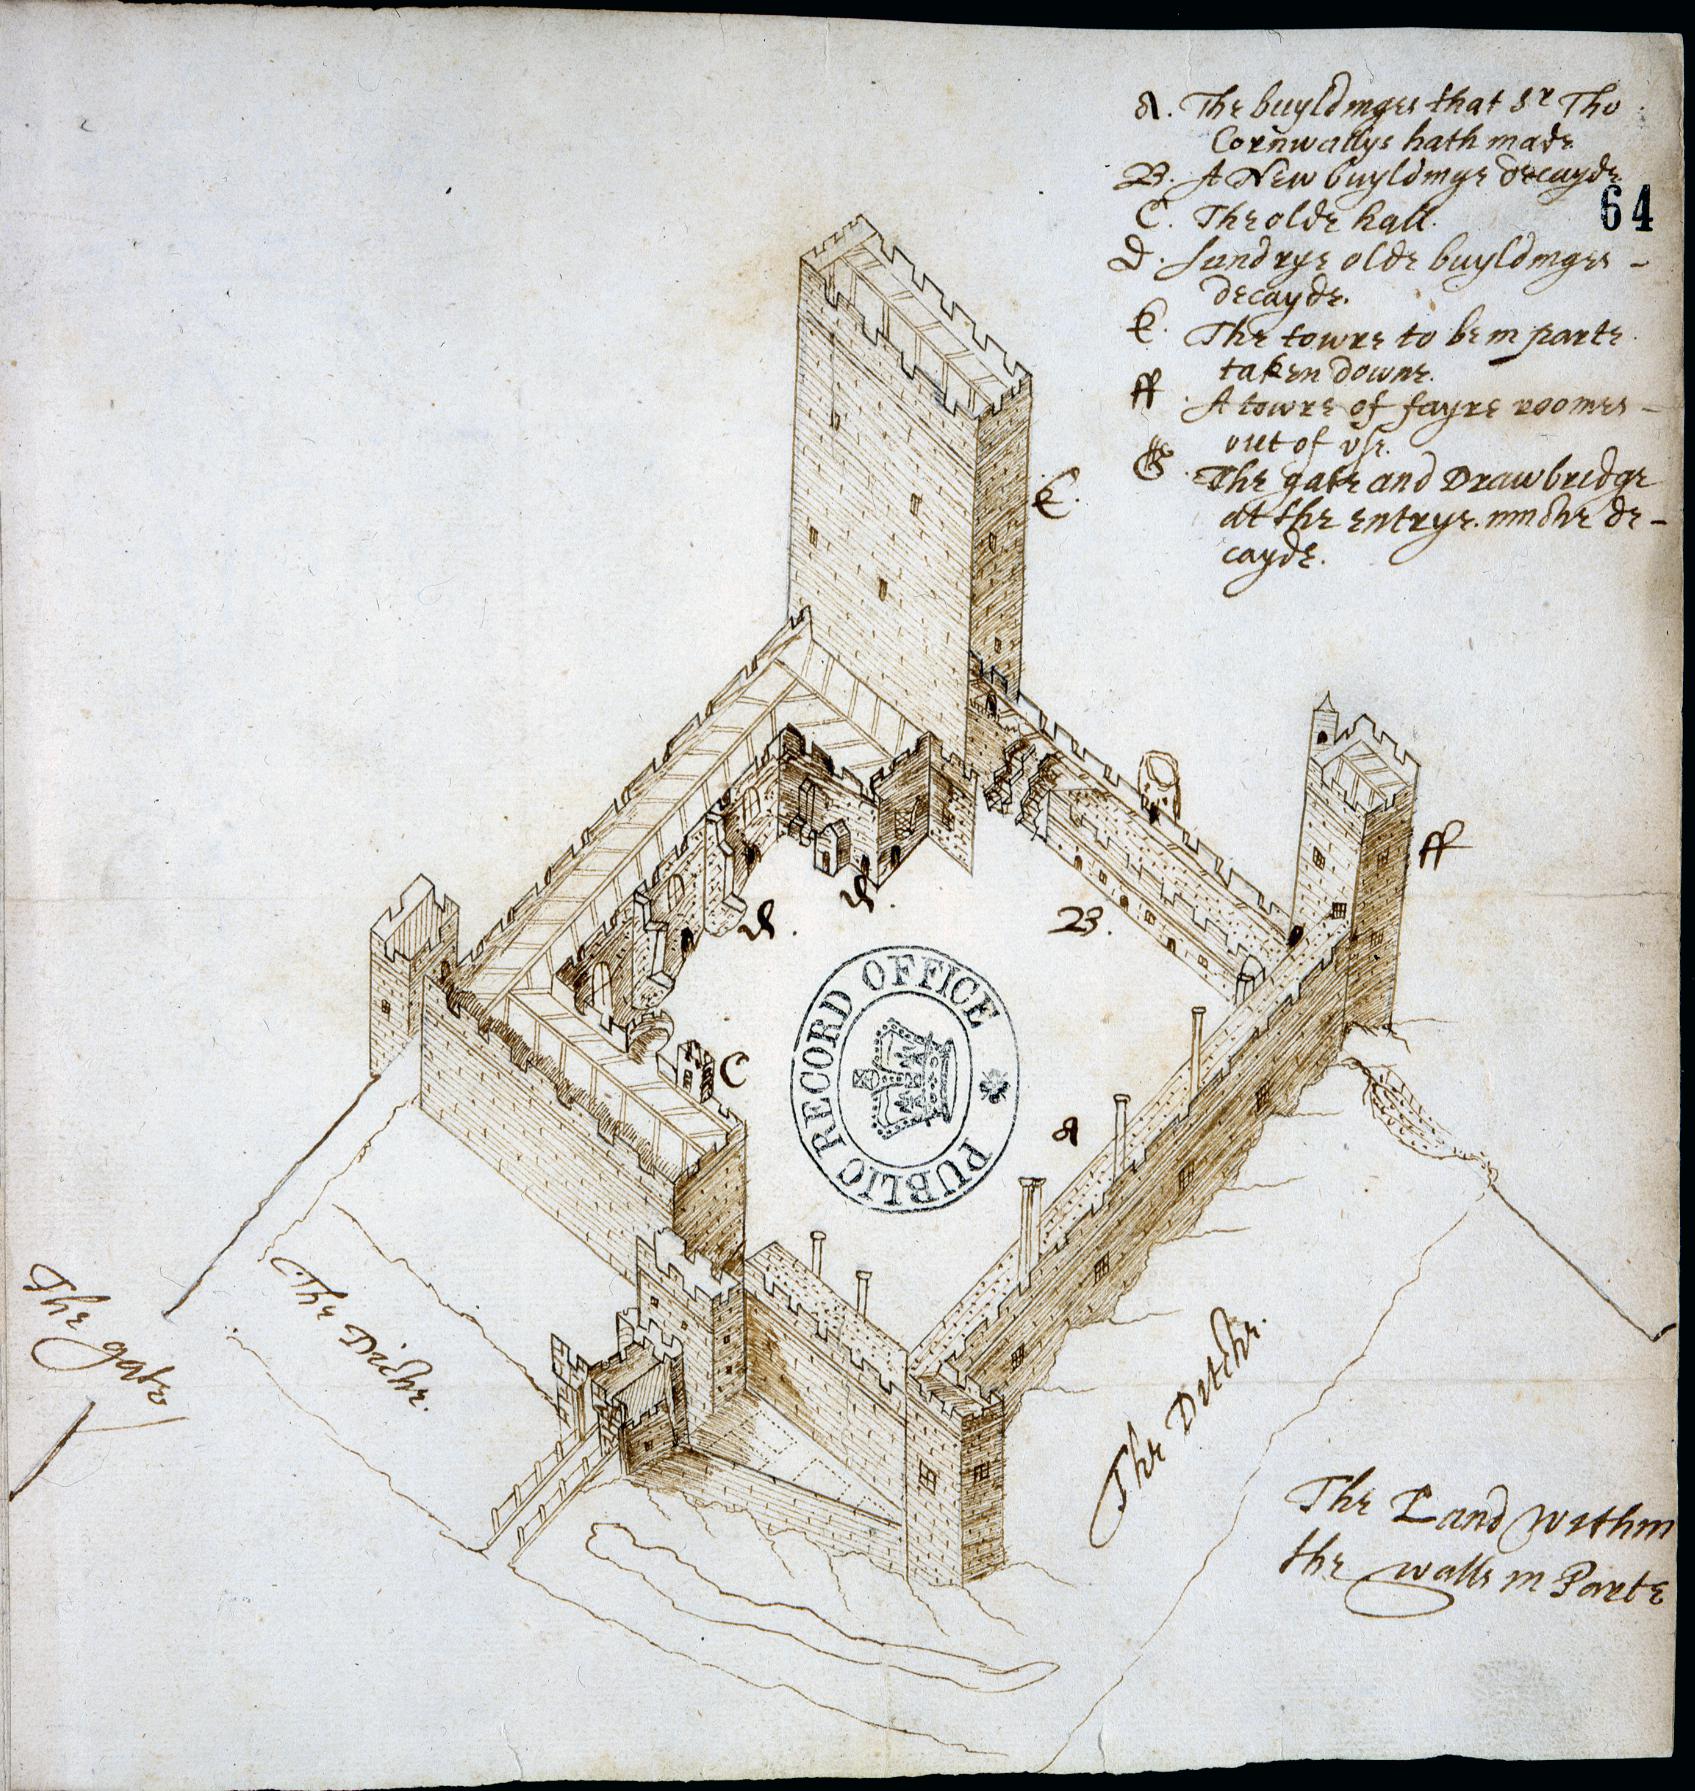 A. The buyldinges that Sr Tho
Cornwallys hath made
B. A New buyldinge decayde
64
C. The olde hall.
D. Sundrye olde buyldinges -
decayde.
E. The towre to be in parte
taken downe.
ff. A towre of fayre roomes -
out of use.
G. The gate and Drawbridge
at the entrye. muche de-
cayde.
E.
ff
D.
D.
B.
C
A
PUBLIC RECORD OFFICE
The gate
The Diche.
The Ditche.
The Land within
the walls in Parte